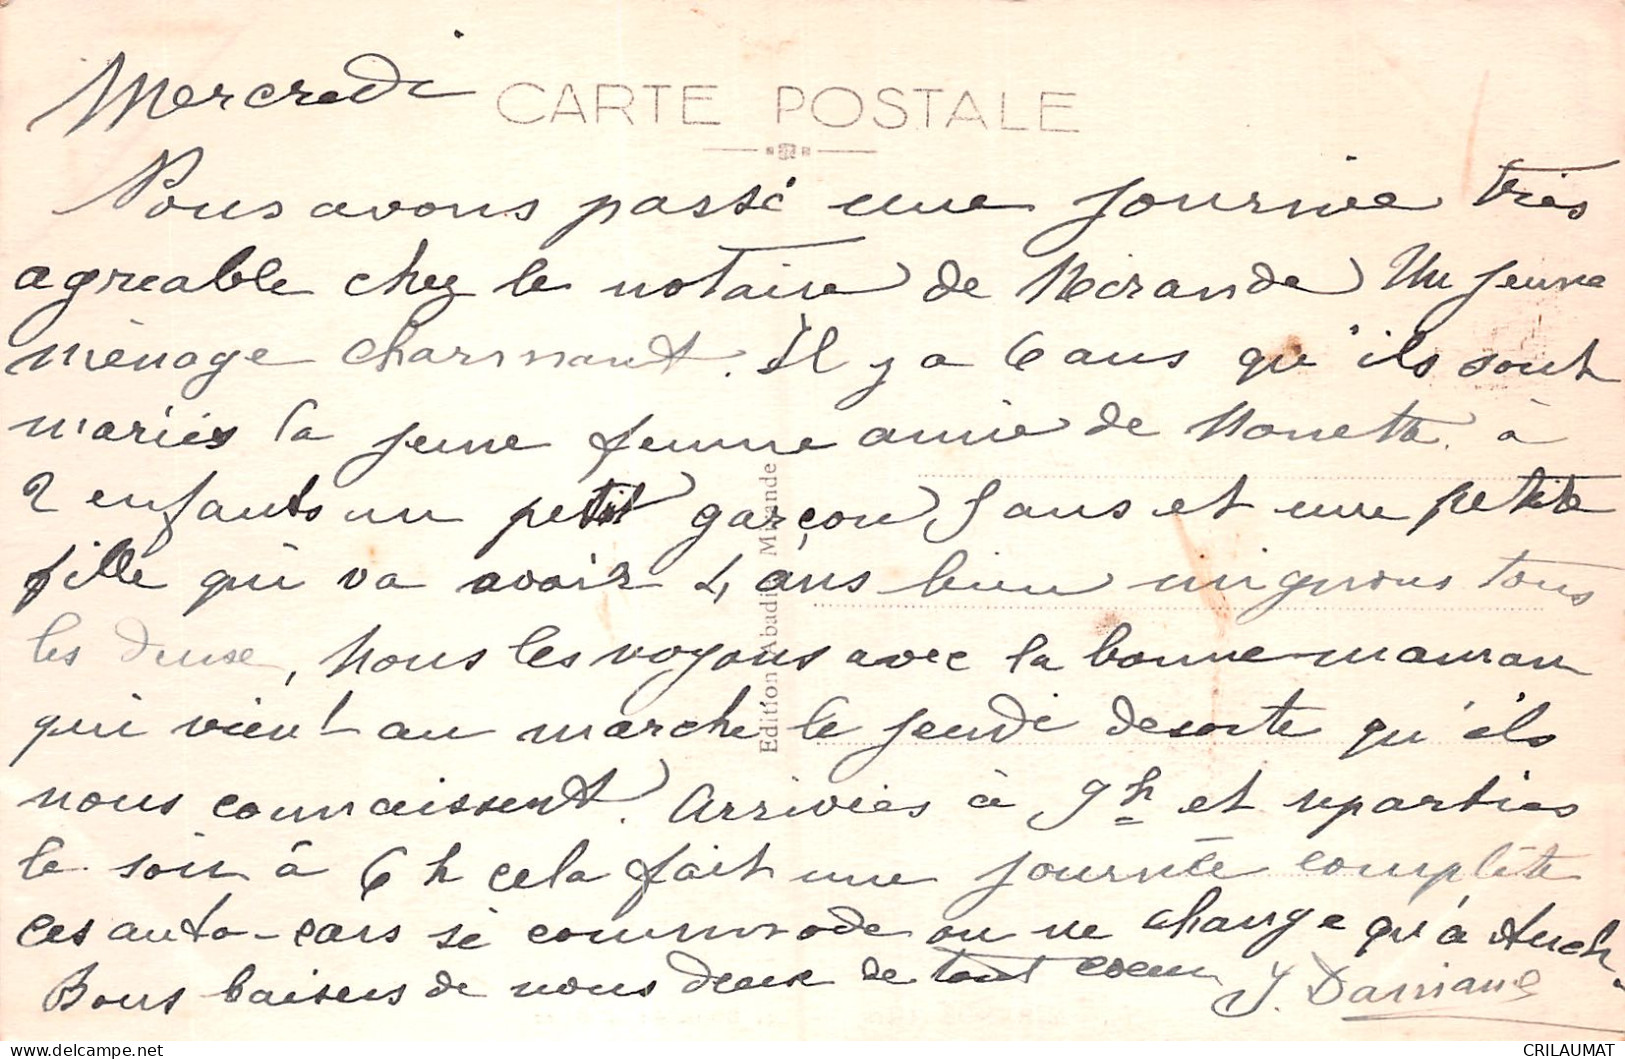 Mercredi
CARTE POSTALE
Nous avons passé une journée très
agreable chez le notaire de Mirande Un jeune
ménage charmant. Il y a 6 ans qu'ils sont
mariés la jeune femme amie de Nonette à
2 enfants un petit garçon 5 ans et une petite
fille qui va avoir 4 ans bien mignons tous
les deux, Nous les voyons avec la bonne-maman
qui vient au marche le jeudi desorte qu'ils
nous connaissent. Arrivées à 9h et reparties
le soir à 6 h cela fait une journée complète
ces auto-cars si commode on ne change qu'à Auch.
Bons baisers de nous deux de tout coeur
J. Damiane
Edition Abadie Mirande
CRILAUMAT